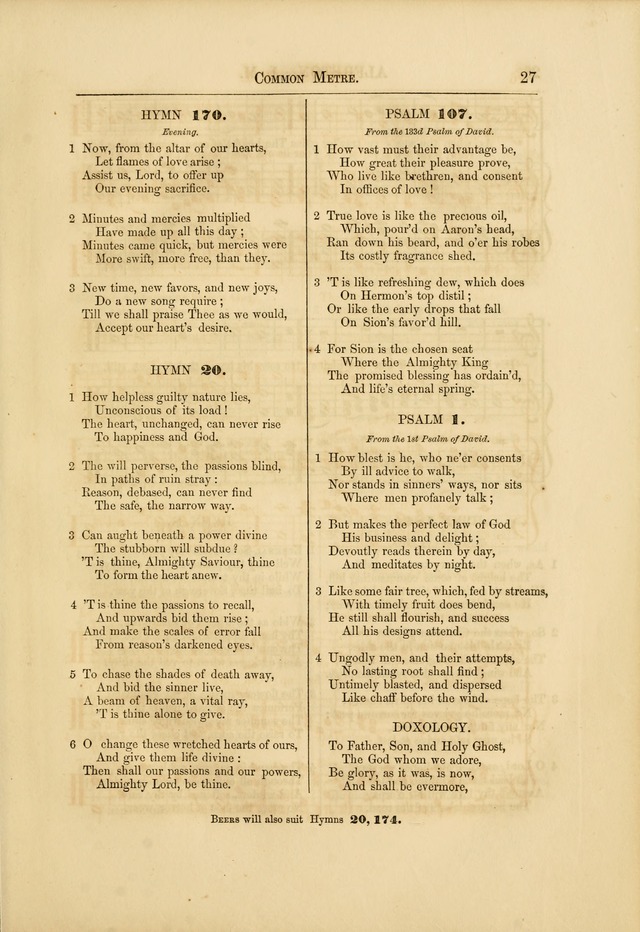 COMMON METRE. 27
HYMN 170.
Evening.
1 Now, from the altar of our hearts,
Let flames of love arise ;
Assist us, Lord, to offer up
Our evening sacrifice.
2 Minutes and mercies multiplied
Have made up all this day ;
Minutes came quick, but mercies were
More swift, more free, than they.
3 New time, new favors, and new joys,
Do a new song require ;
Till we shall praise Thee as we would,
Accept our heart's desire.
HYMN 20.
1 How helpless guilty nature lies,
Unconscious of its load !
The heart, unchanged, can never rise
To happiness and God.
2 The will perverse, the passions blind,
In paths of ruin stray :
Reason, debased, can never find
The safe, the narrow way.
3 Can aught beneath a power divine
The stubborn will subdue ?
'T is thine, Almighty Saviour, thine
To form the heart anew.
4 'T is thine the passions to recall,
And upwards bid them rise ;
And make the scales of error fall
From reason's darkened eyes.
5 To chase the shades of death away,
And bid the sinner live,
A beam of heaven, a vital ray,
'T is thine alone to give.
6 O change these wretched hearts of ours,
And give them life divine :
Then shall our passions and our powers,
Almighty Lord, be thine.
PSALM 107.
From the 133d Psalm of David.
1 How vast must their advantage be,
How great their pleasure prove,
Who live like brethren, and consent
In offices of love !
2 True love is like the precious oil,
Which, pour'd on Aaron's head,
Ran down his beard, and o'er his robes
Its costly fragrance shed.
3 'T is like refreshing dew, which does
On Hermon's top distil ;
Or like the early drops that fall
On Sion's favor'd hill.
4 For Sion is the chosen seat
Where the Almighty King
The promised blessing has ordain'd,
And life's eternal spring.
PSALM 1.
From the 1st Psalm of David.
1 How blest is he, who ne'er consents
By ill advice to walk,
Nor stands in sinners' ways, nor sits
Where men profanely talk ;
2 But makes the perfect law of God
His business and delight ;
Devoutly reads therein by day,
And meditates by night.
3 Like some fair tree, which, fed by streams,
With timely fruit does bend,
He still shall flourish, and success
All his designs attend.
4 Ungodly men, and their attempts,
No lasting root shall find ;
Untimely blasted, and dispersed
Like chaff before the wind.
DOXOLOGY.
To Father, Son, and Holy Ghost,
The God whom we adore,
Be glory, as it was, is now,
And shall be evermore,
BEERS will also suit Hymns 20, 174.